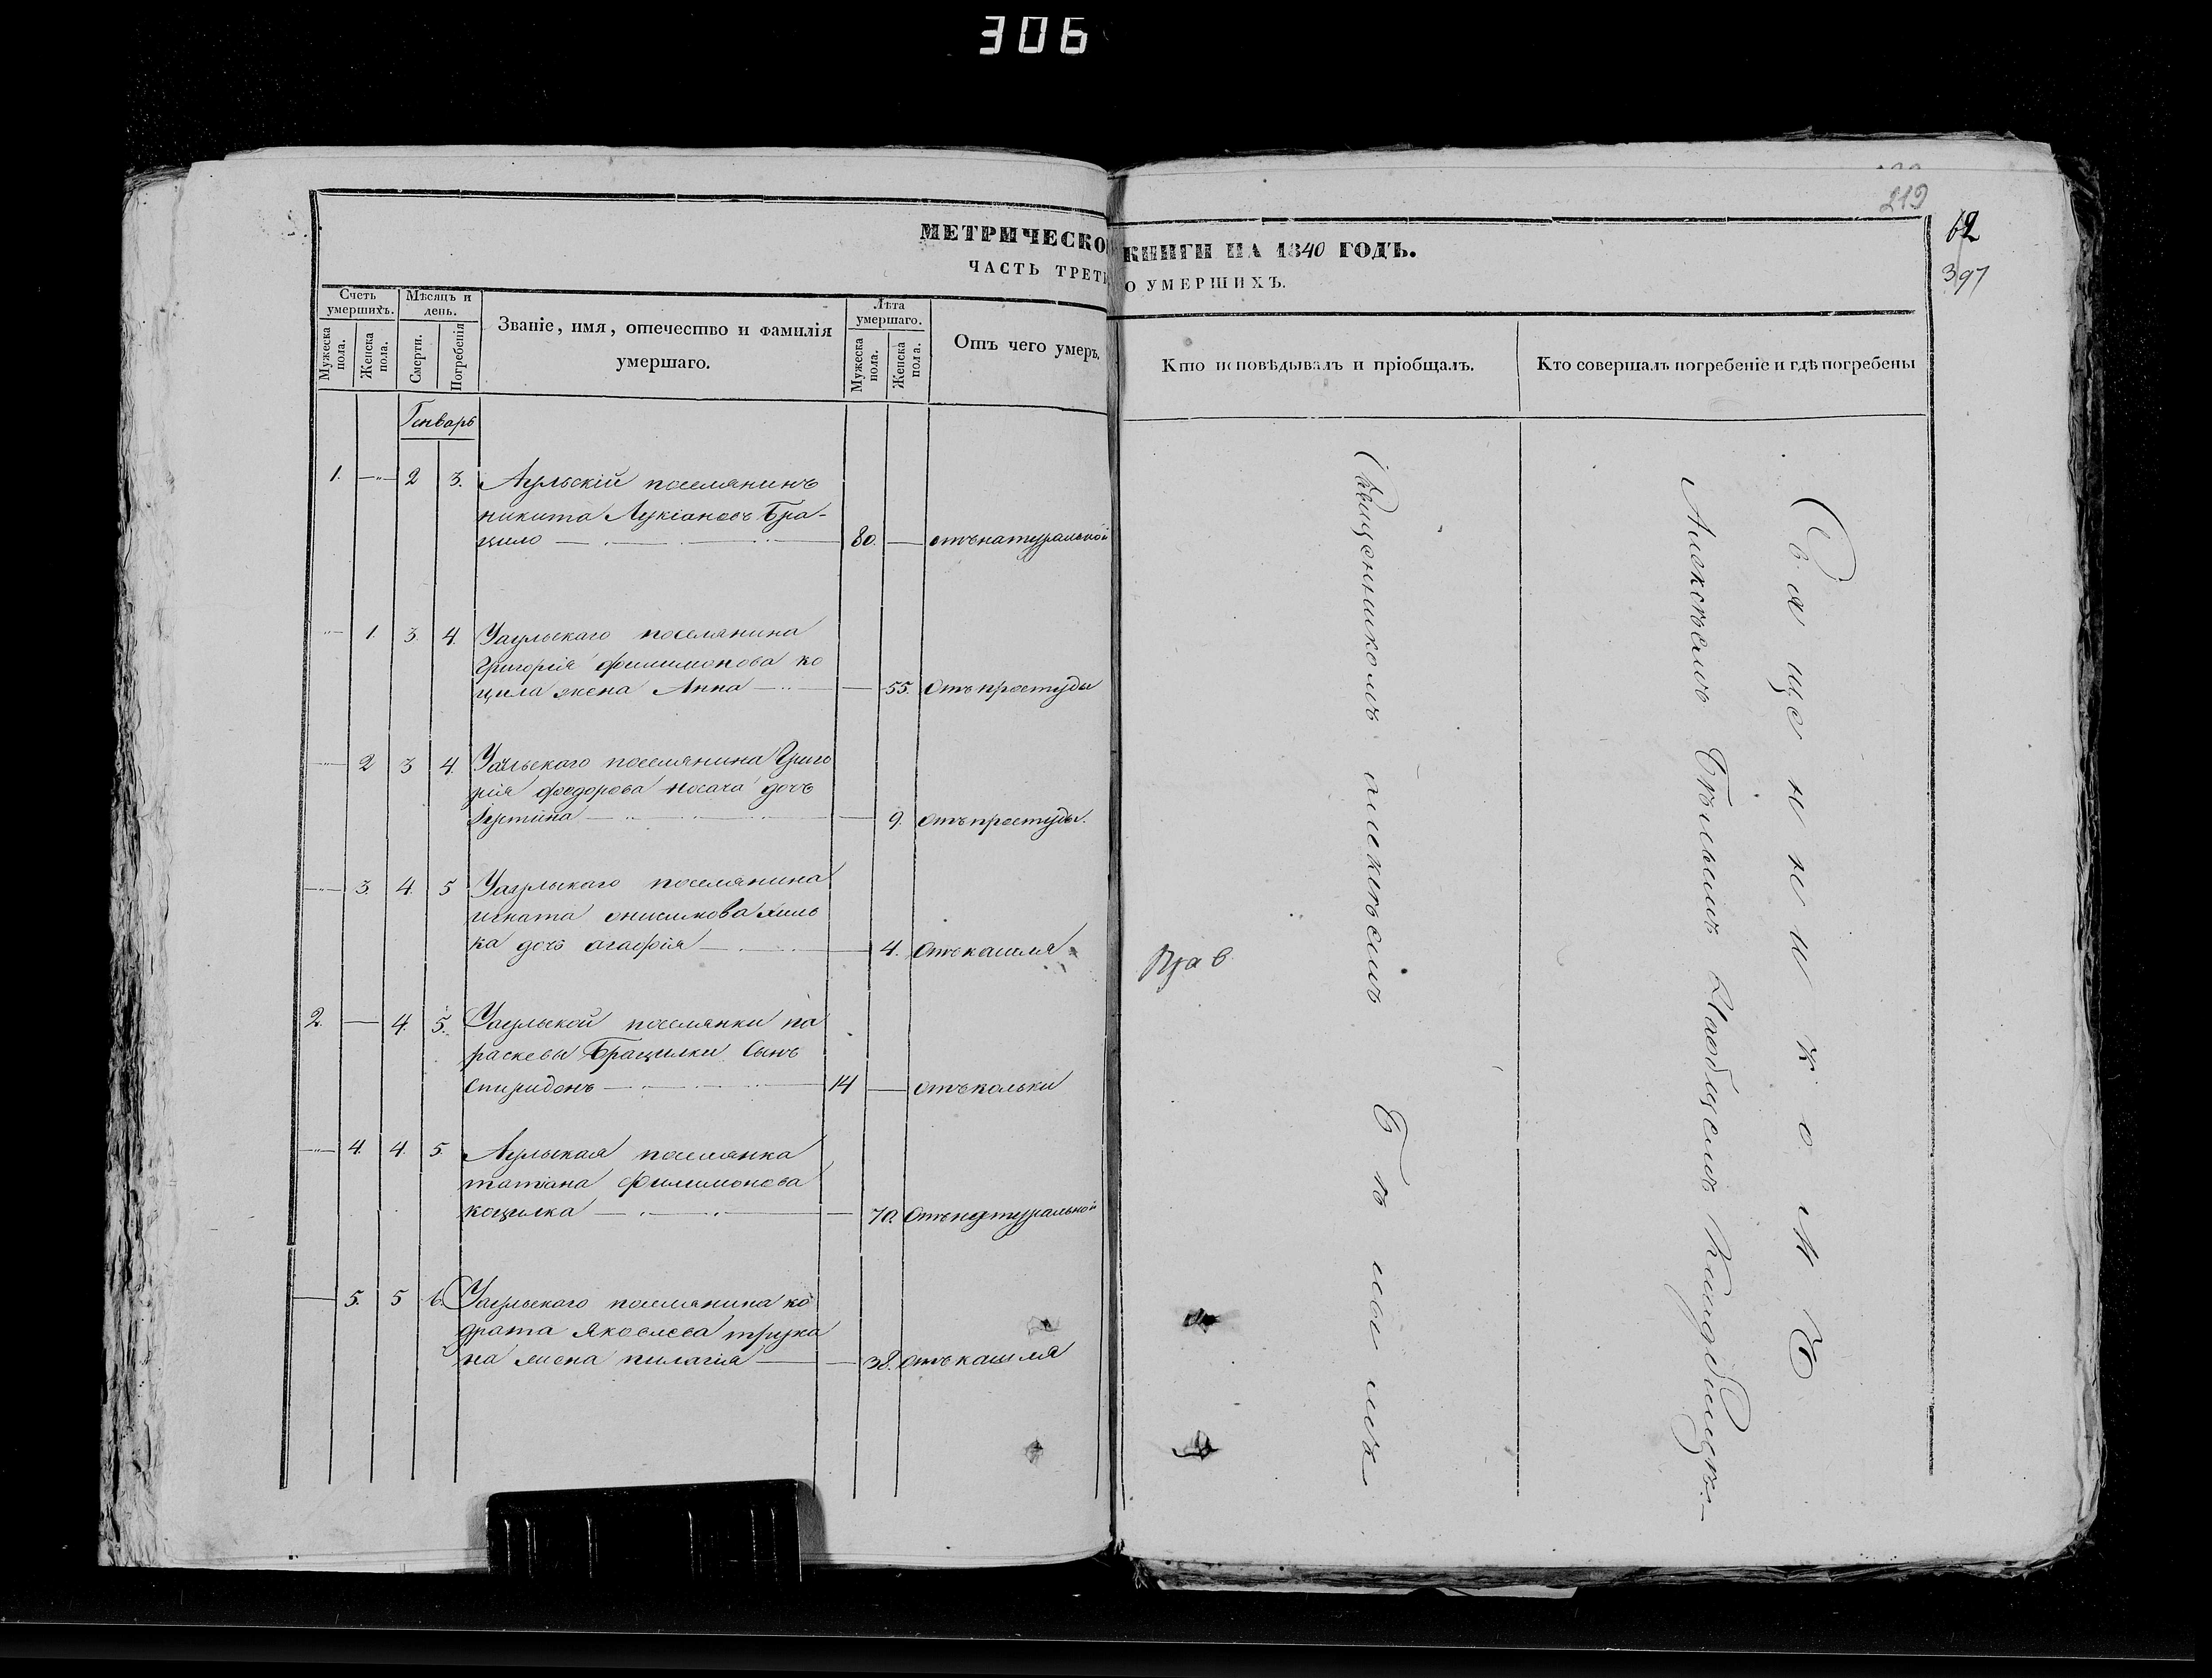 306
219
62
397
МЕТРИЧЕСКО КНИГИ НА 1840 ГОДЪ.
ЧАСТЬ ТРЕТЬ О УМЕРШИХЪ.
Счетъ умершихъ.
Мужеска пола.
Женска пола.
Мѣсяцъ и день.
Смерти.
Погребенія
Званіе, имя, отечество и фамилія
умершаго.
Лѣта умершаго.
Мужеска пола.
Женска пола.
Отъ чего умеръ.
Кто исповѣдывалъ и пріобщалъ.
Кто совершалъ погребеніе и гдѣ погребены
Генварь
1. 2 3. Аульскій поселянинъ
никита Лукіановъ Бра-
цило 80. отъ натуральной
1. 3. 4. Уаульскаго поселянина
Григорія филимонова ко
цила жена Анна 55. Отъ простуды
2 3 4. поселянина Григо
рія феодорова носача дочь
Іустина 9. отъ простуды.
3. 4. 5 Уаульскаго поселянина
игната онисимова хиль
ка дочь агафія 4. Отъ кашля
2. 4. 5. Уаульской поселянки па
раскевы Брацилки Сынъ
Спиридонъ 14 отъ кольки
4. 4. 5. Аульская поселянка
татіана филимонова
коцилка 70. Отъ натуральной
5. 5 6. Уаульскаго поселянина ко
драта Яковлева
на жена пилагія 38. отъ кашля
Священникомъ алексѣемъ Бѣлымъ
Священникомъ
Алексѣемъ Бѣлымъ кладбищемъ